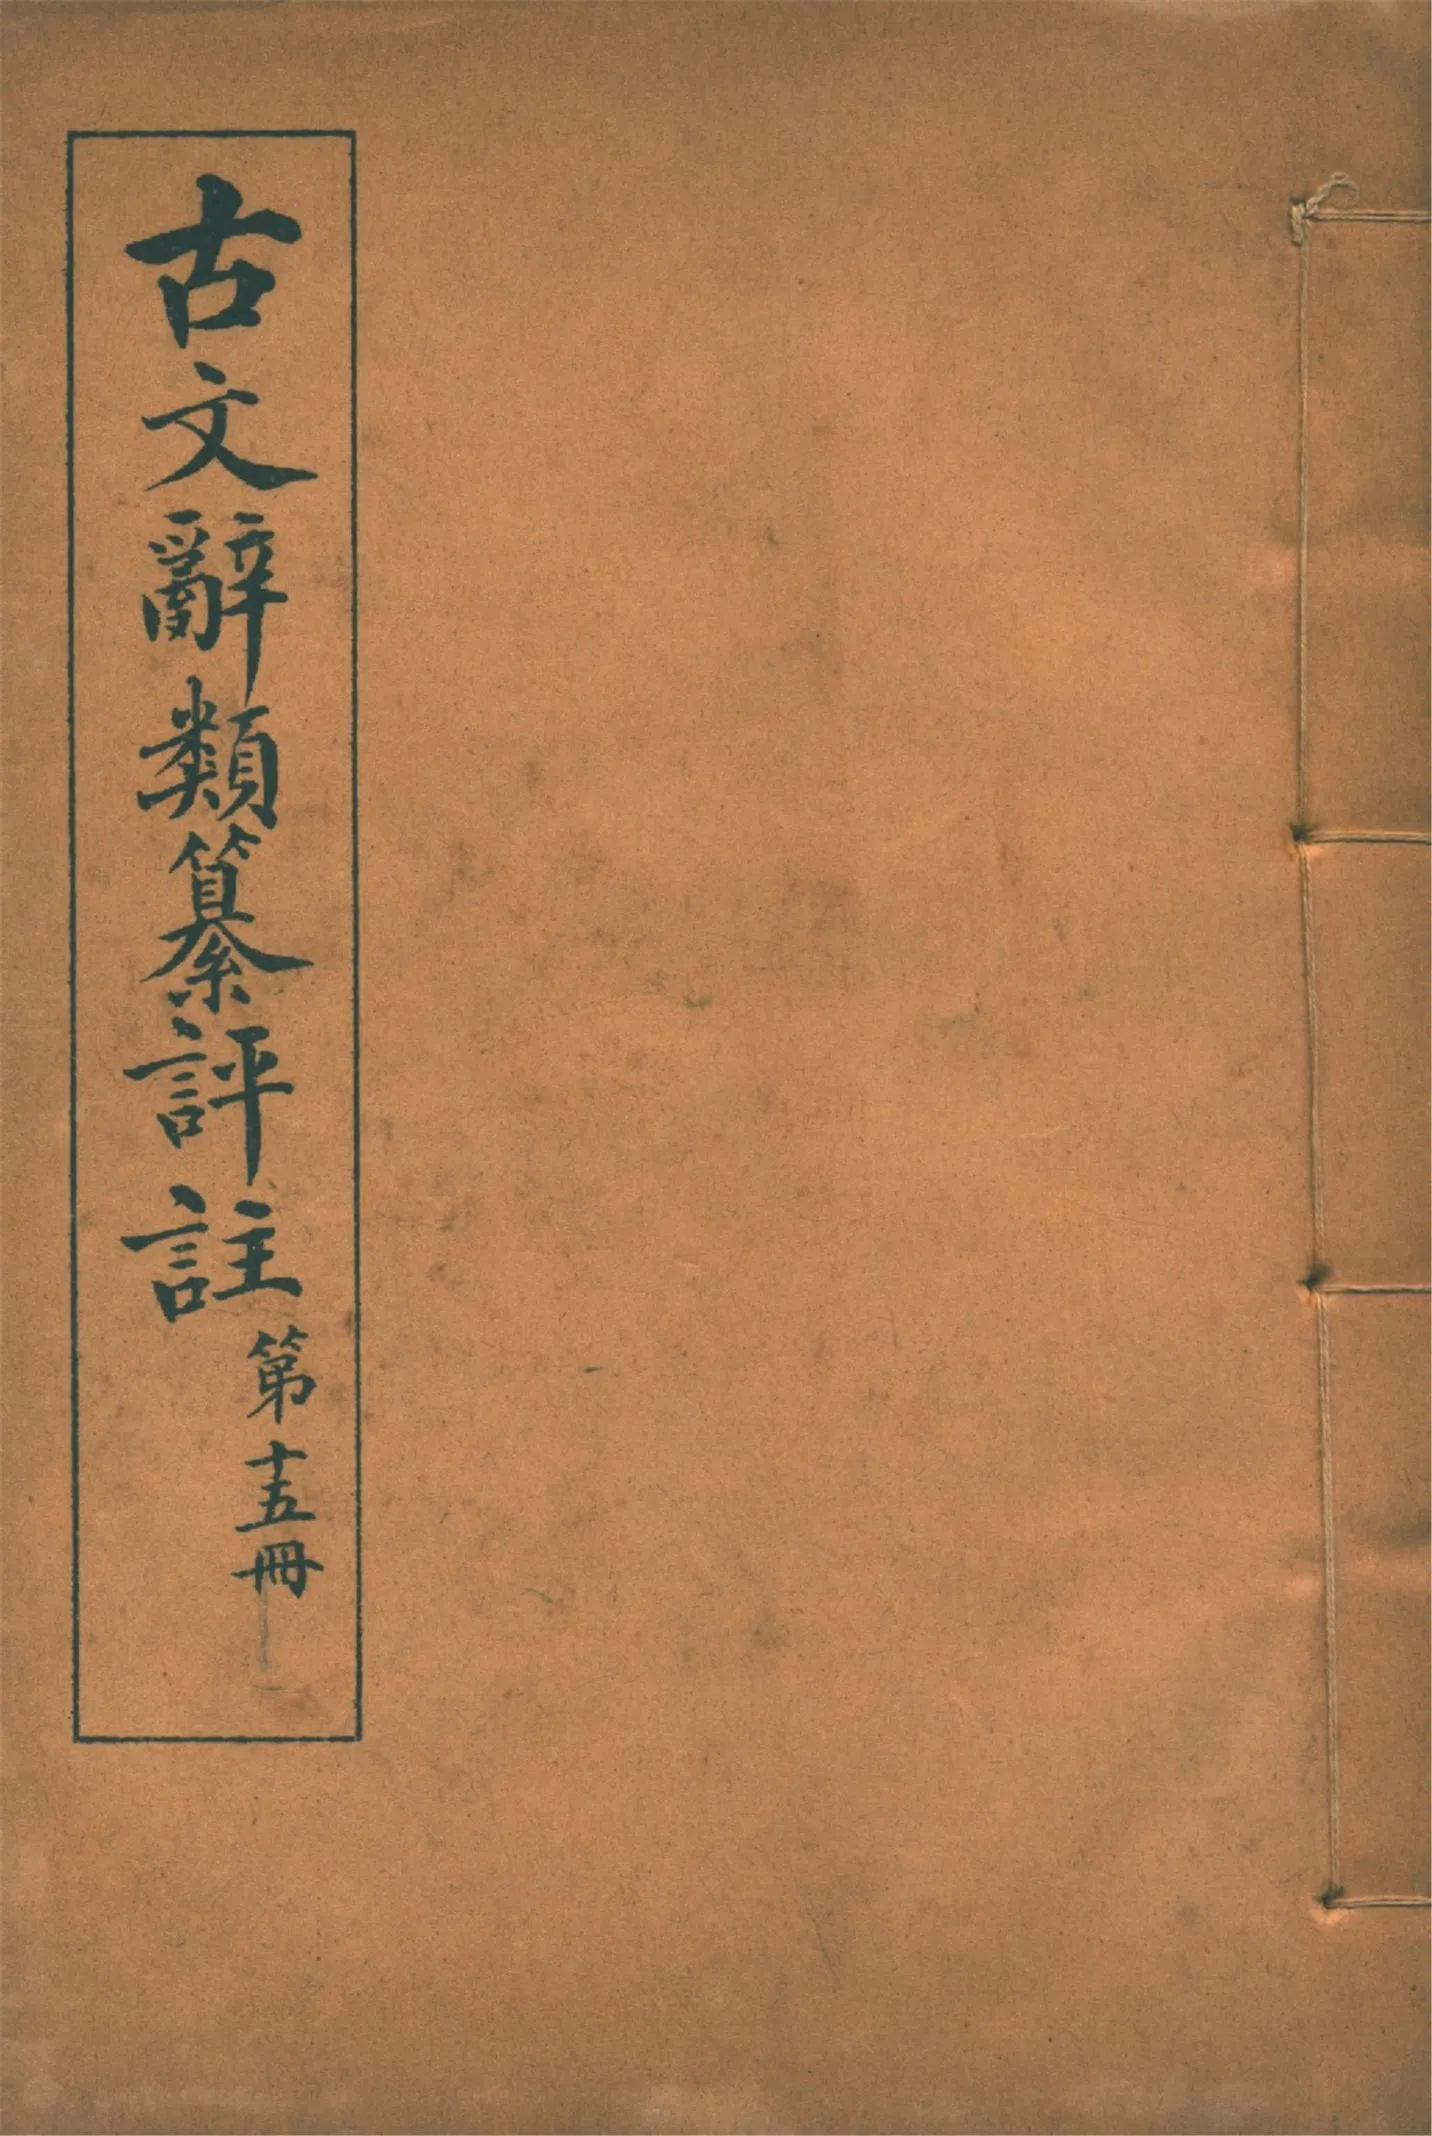 古文辭類纂評註
第十五冊